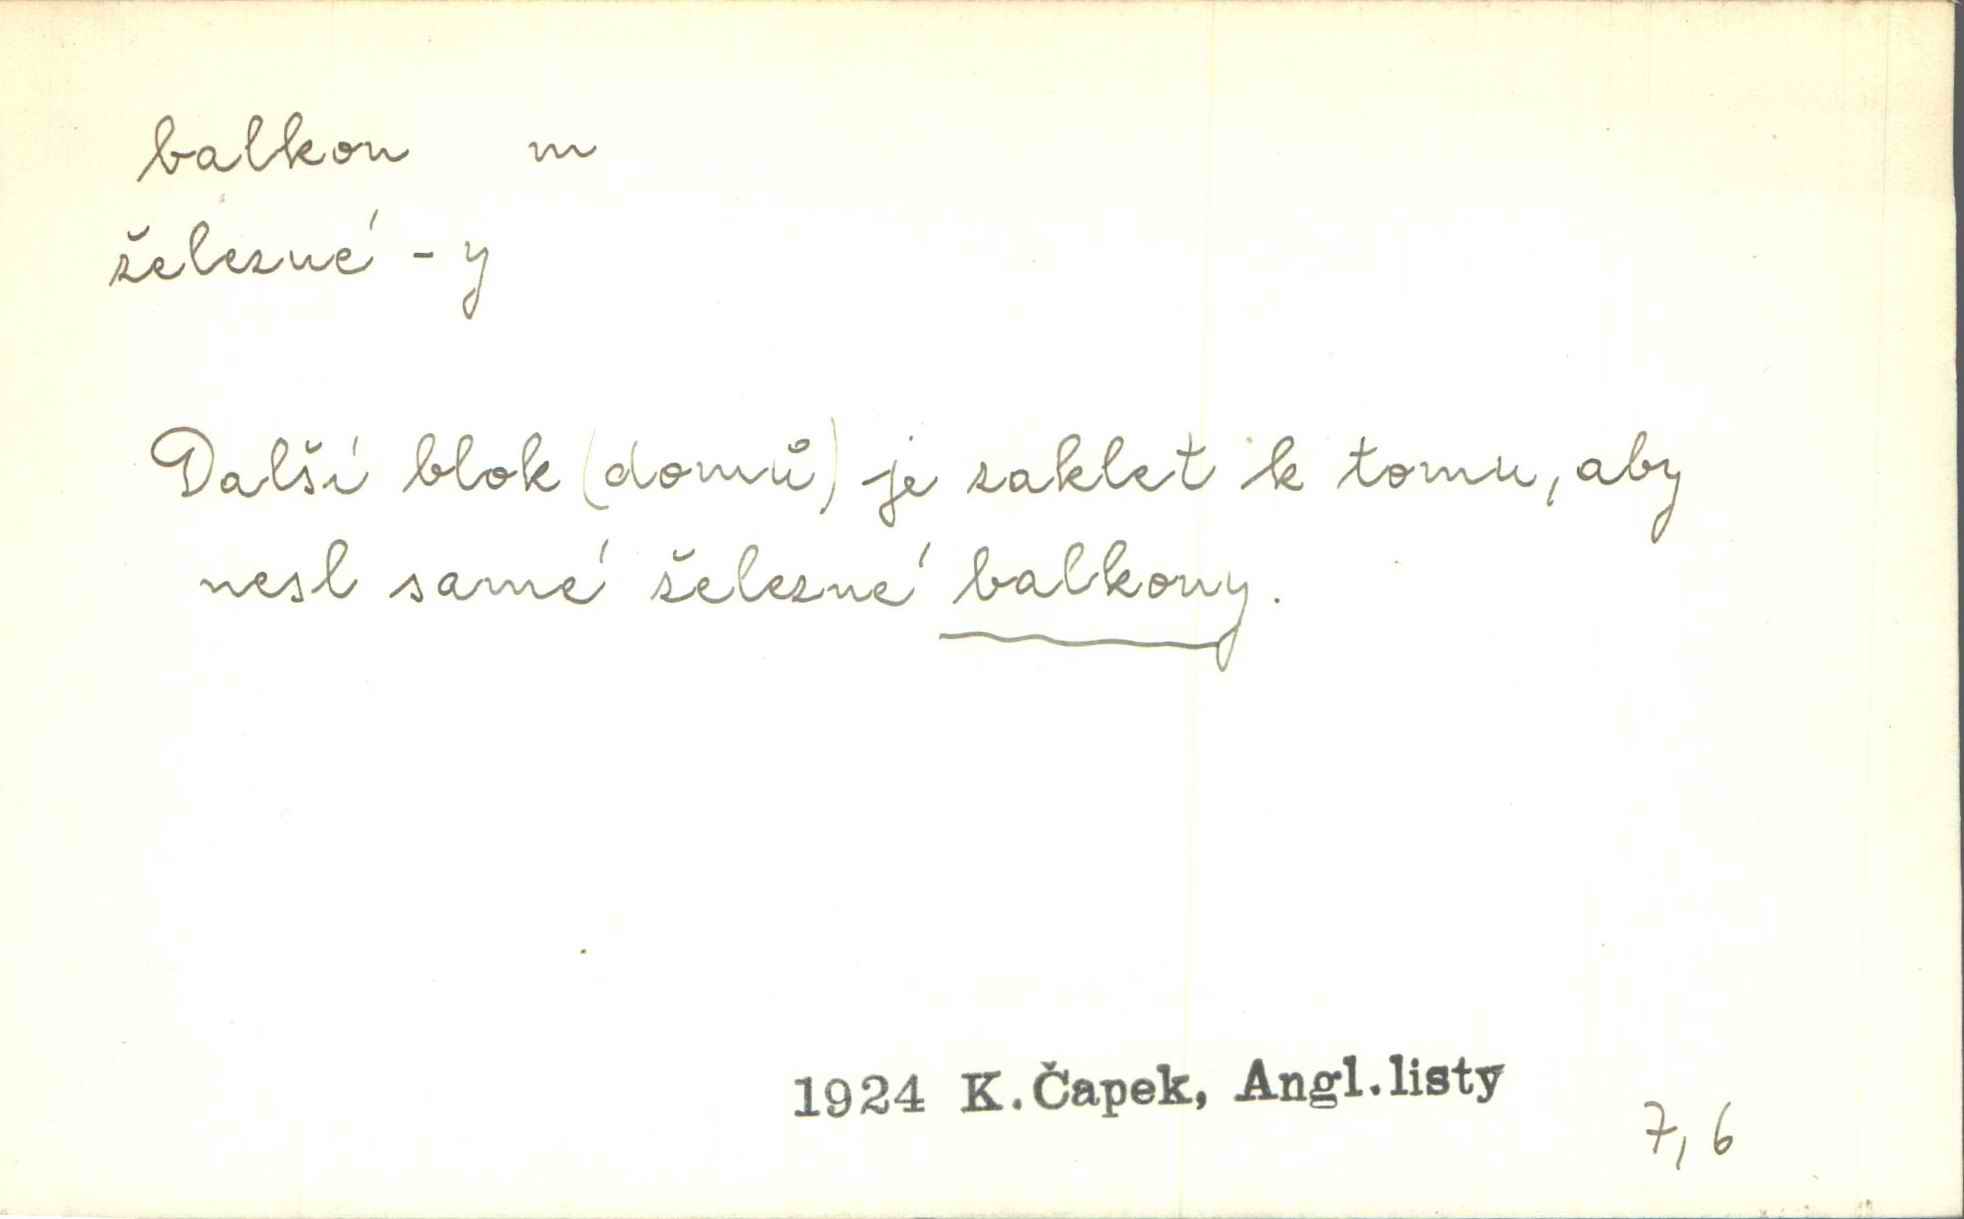 balkon m
železné - y
Další blok (domů) je zaklet k tomu, aby
nesl samé železné balkony.
1924 K.Čapek, Angl.listy
7, 6